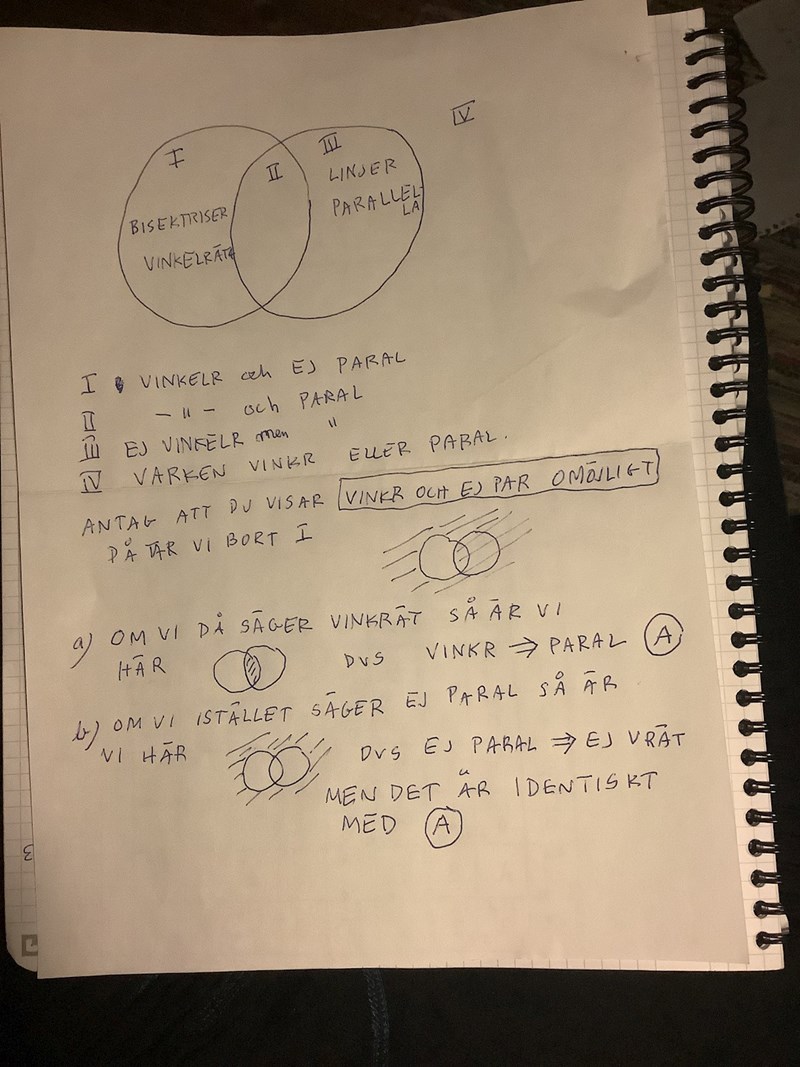 I
II
III
LINJER
PARALLEL
LA
IV
BISEKTRISER
VINKELRÄTA
I VINKELR och EJ PARAL
II — " — och PARAL
III EJ VINKELR men "
IV VARKEN VINKR ELLER PARAL.
ANTAG ATT DU VISAR VINKR OCH EJ PAR OMÖJLIGT
DÅ TAR VI BORT I
a) OM VI DÅ SÄGER VINKRÄT SÅ ÄR VI
HÄR DVS VINKR ⇒ PARAL A
b) OM VI ISTÄLLET SÄGER EJ PARAL SÅ ÄR
VI HÄR DVS EJ PARAL ⇒ EJ VRÄT
MEN DET ÄR IDENTISKT
MED A